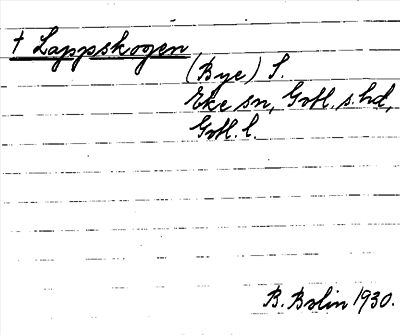 † Lappskogen
(Bye) S.
Eke sn, Gotl. s. hd,
Gotl. l.
B. Bolin 1930.